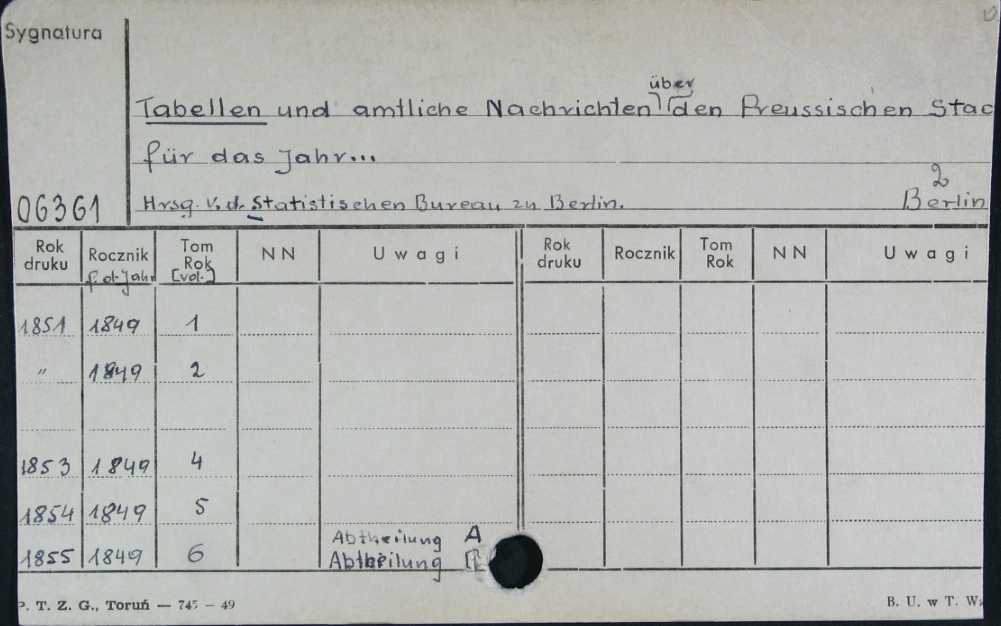 Sygnatura
über
Tabellen und amtliche Nachrichten den Preussischen Stac
für das Jahr...
2
06361 Hrsg. v. d. Statistischen Bureau zu Berlin. Berlin
Rok druku Rocznik f. d. Jahr Tom Rok [vol.] NN Uwagi Rok druku Rocznik Tom Rok NN Uwagi
1851 1849 1
" 1849 2
1853 1849 4
1854 1849 5
Abtheilung A
1855 1849 6 Abtheilung
P. T. Z. G., Toruń — 745 — 49 B. U. w T. W.